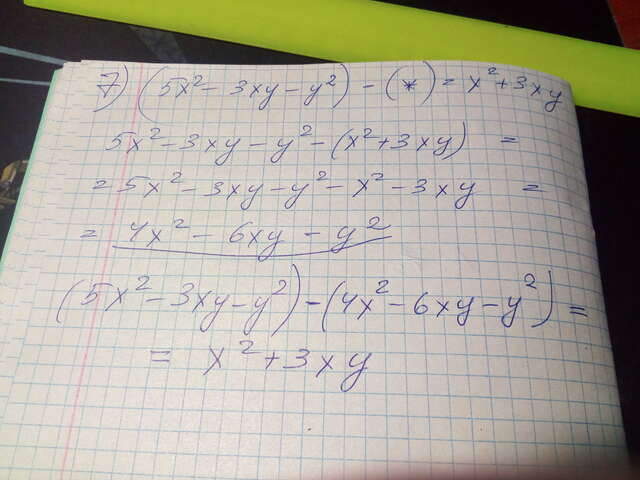 7) (5x² - 3xy - y²) - (*) = x² + 3xy
5x² - 3xy - y² - (x² + 3xy) =
= 5x² - 3xy - y² - x² - 3xy =
= 4x² - 6xy - y²
(5x² - 3xy - y²) - (4x² - 6xy - y²) =
= x² + 3xy